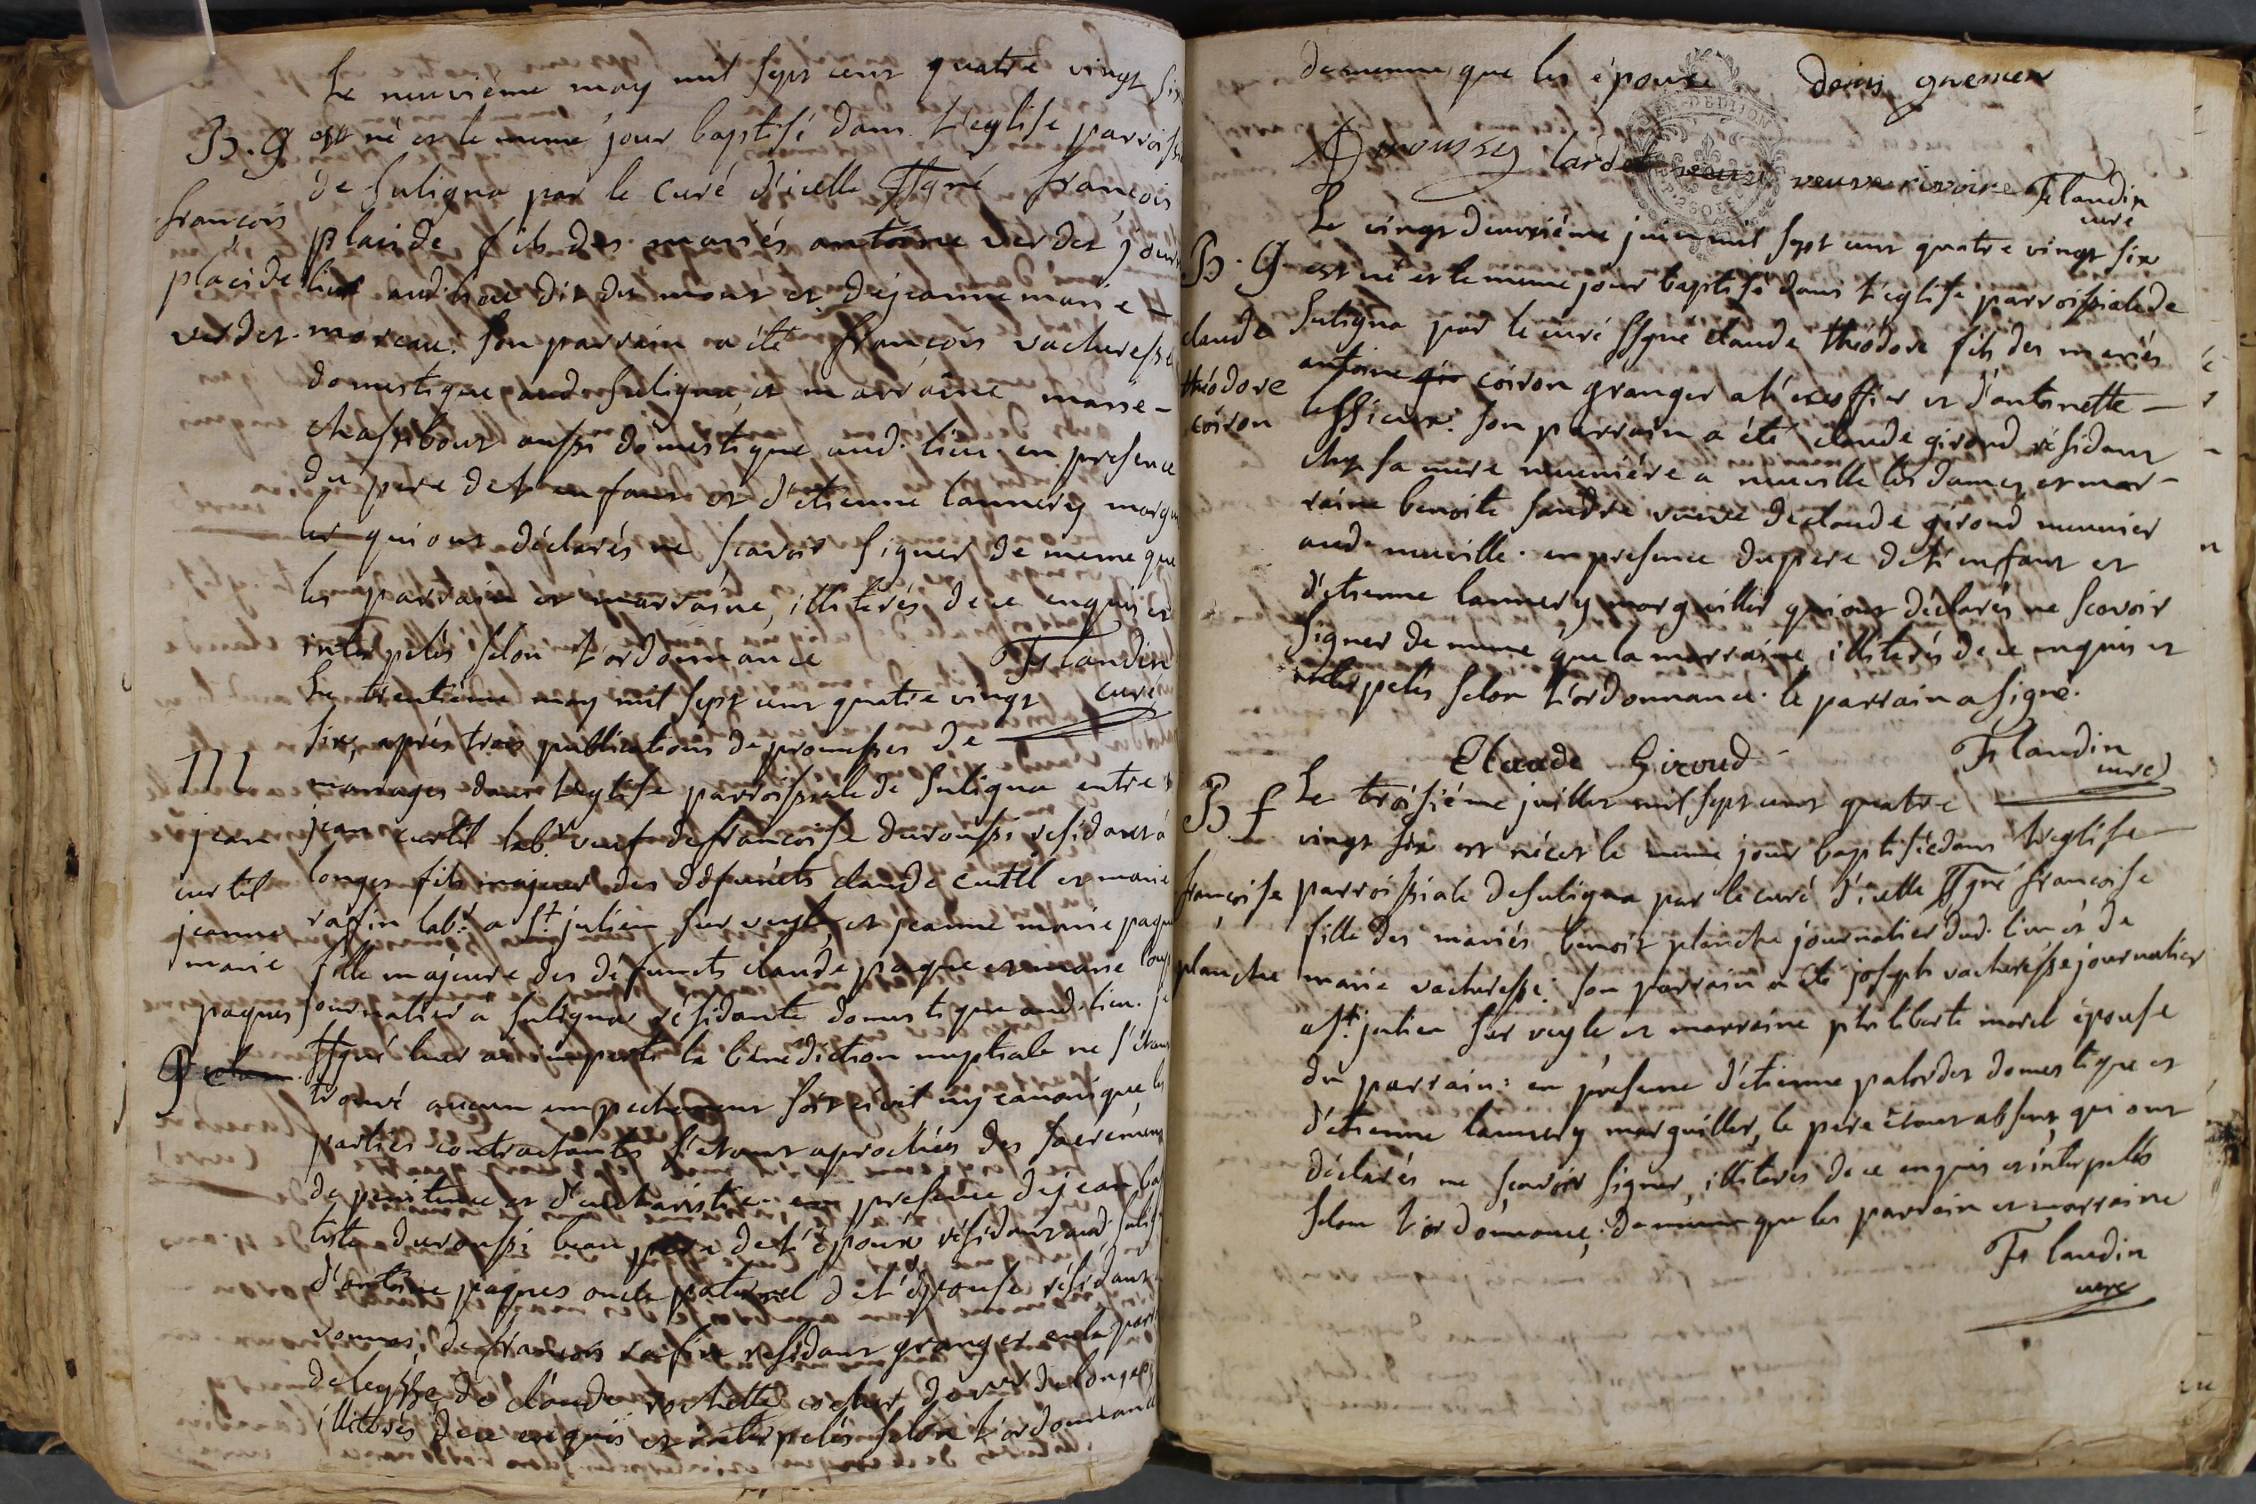 Le neuvième may mil sept cent quatre vingt six
B. G est né et le meme jour baptisé dans l'eglise parroiss
de Suligna par le curé d'icelle ssgné françois
françois
placide fils des mariés antoine verdet jour
placide
lieu dit des mont et de jeanne marie
verdet
moreau. son parrain a été françois vacheresse
domestique aud suligna, et marraine marie
chastibout aussi domestique aud. lieu. en presence
du pere de l'enfant et d'étienne lannery margui
ler qui ont déclarés ne scavoir signer de meme que
les parrain et marraine, illiterés de ce enquis et
interpelés selon l'ordonnance Flandin
curé
Le trentième may mil sept cent quatre vingt
six, après trois publications de promesses de
M mariages dans l'eglise parroissiale de Suligna entre
jean
jean curtil labr. veuf de francoise duroussi residant à
curtil
longes fils majeur des défuncts claude curtil et marie
jeanne
raffin labr. a st. julien sur veyle, et jeanne marie paque
marie
fille majeure des défuncts claude paque et marie
paques
journalier a suligna résidante domestique aud. lieu. je
ssgné leur ai imparti la bénédiction nuptiale ne s'étant
trouvé aucun empechement soit civil ny canonique, les
parties contractantes s'étant aprochées des sacrements
de penitence et d'eucharistie en presence de jean bap
tiste duroussi beau pere de l'époux résidant aud. sulig
d'antoine paques oncle paternel de l'épouse résidant
vonnas, de françois rafin résidant granger en la parr
de leysse, de claude rochette cocher demt. de longes
illiterés de ce enquis et interpelés selon l'ordonnance
de meme que les épouse denis guenier
Duroussy lardet veuve rivoire Flandin
curé
Le vingt deuxième juin mil sept cent quatre vingt six
B. G est né et le meme jour baptisé dans l'eglise parroissiale de
claude
Suligna par le curé ssgné claude théodore fils des mariés
théodore
antoine coiron granger a l'écossier et d'antoinette
coiron
son parrain a été claude giroud résidant
chez sa mere meunière a neuville les dames, et mar-
raine benoite sandre veuve de claude giroud meunier
aud. neuville. en presence du pere de l'enfant et
d'étienne lannery marguiller qui ont déclarés ne scavoir
signer de meme que la marraine illiterés de ce enquis et
interpelés selon l'ordonnance. le parrain a signé.
Claude Giroud Flandin
curé
B. f Le troisième juillet mil sept cent quatre
vingt six est née et le meme jour baptisée dans l'eglise
françoise
parroissiale de suligna par le curé d'icelle ssgné françoise
fille des mariés benoit planche journalier dud. lieu et de
planche
marie vacheresse: son parrain a été joseph vacheresse journalier
a st. julien sur veyle et marraine philiberte morel épouse
du parrain: en presence d'étienne palordet domestique et
d'étienne lannery marguiller, le pere étant absent, qui ont
déclarés ne scavoir signer, illiterés de ce enquis et interpelés
selon l'ordonnance, de meme que les parrain et marraine
Flandin
curé